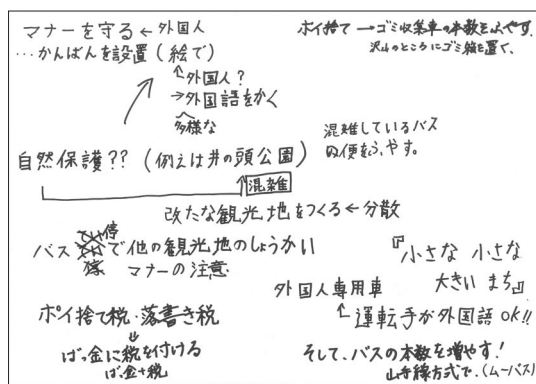 マナーを守る ← 外国人
…かんばんを設置(絵で)
↑外国人?
→外国語をかく
多様な
ポイ捨て → ゴミ収集車の本数をふやす。
沢山のところにゴミ箱を置く、
自然保護?? (例えは井の頭公園)
混雑しているバス
の便をふやす。
↑混雑
改たな観光地をつくる ← 分散
バス停で他の観光地のしょうかい
マナーの注意
『小さな 小さな
大きい まち』
外国人専用車
↑運転手が外国語OK!!
ポイ捨て税・落書き税
⇓
ばっ金に税を付ける
ばっ金+税
そして、バスの本数を増やす!
山手線方式で、(ムーバス)